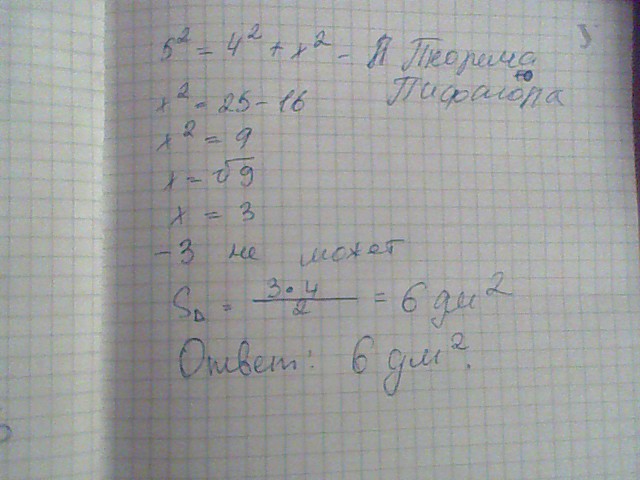 5² = 4² + x² - П Теорема
Пифагора
x² = 25 - 16
x² = 9
x = √9
x = 3
-3 не может
S△ = 3·4/2 = 6 дм²
Ответ: 6 дм².